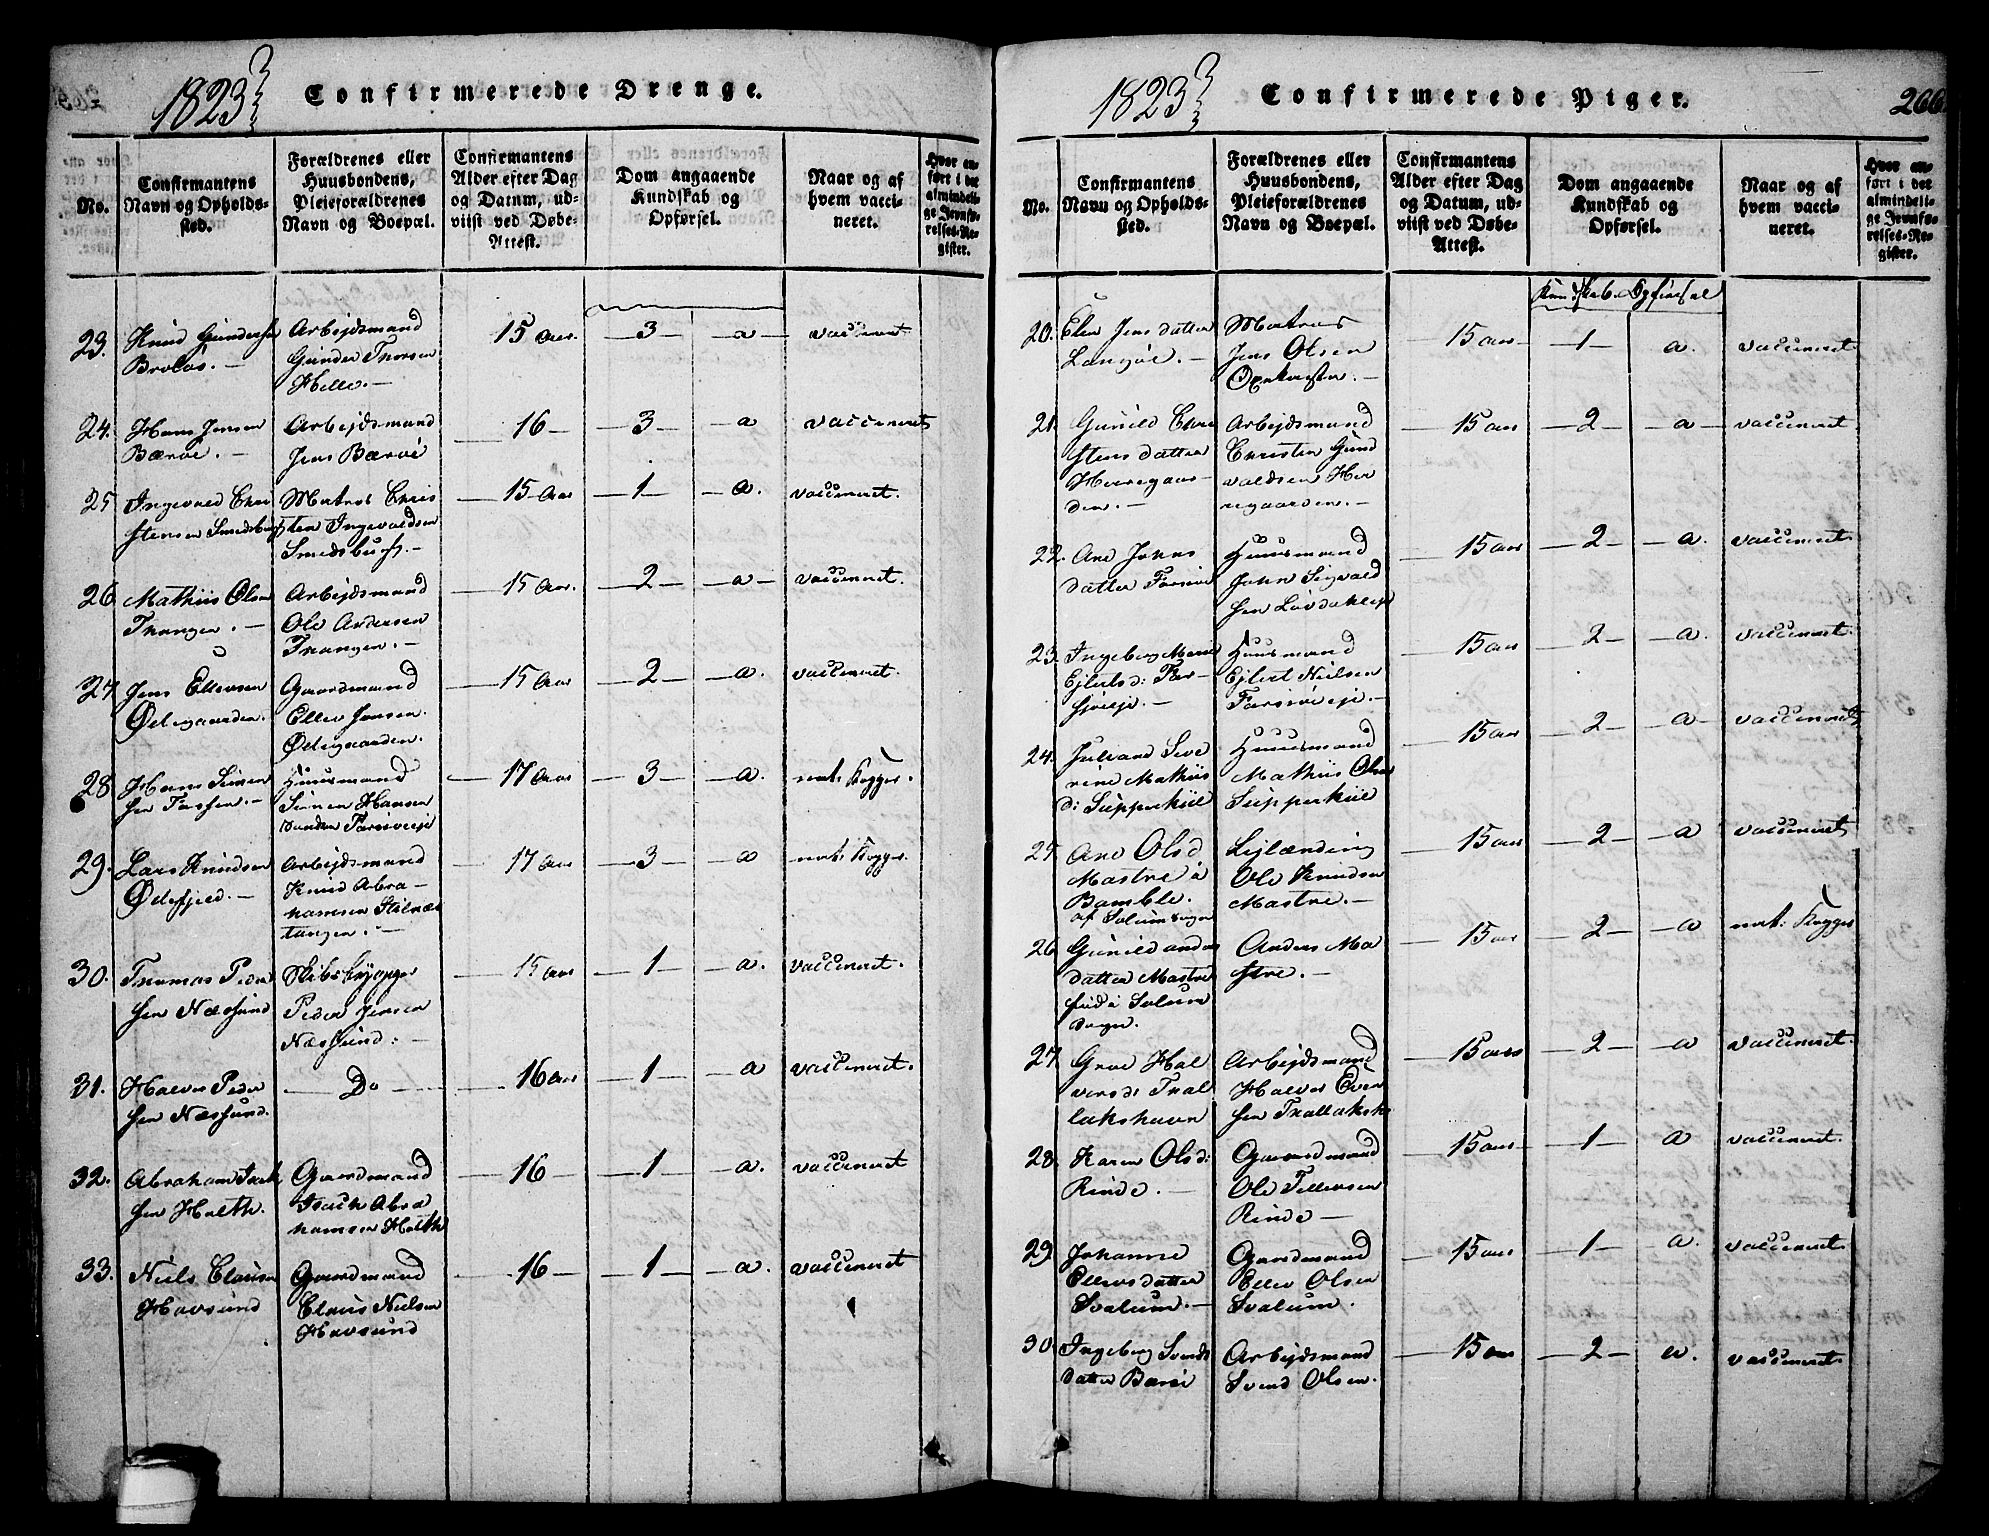 1823
Confirmerede Drenge.
No.
Confirmantens
Navn og Opholds-
sted.
Forældrenes eller
Huusbondens,
Pleieforældrenes
Navn og Boepæl.
Confirmantens
Alder efter Dag
og Datum, ud-
viist ved Døbe-
Attest.
Dom angaaende
Kundskab og
Opførsel.
Naar og af
hvem vacci-
neret.
Hvor an-
ført i det
almindeli-
ge Jevnfø-
relses-Re-
gister.
23. Knud Gundersen
Arbejdsmand
15 Aar. 3 a vaccineret
Gunder Thorsen
Helle.
24. Hans Jensen
Bærøe.
Arbejdsmand
Jens Bærøe
16 3 a vaccineret
25 Ingevald Chri
stensen Smedsbugt
Matros Chris
ten Ingevaldsen
Smedsbugt.
15 Aar 1 a. vaccineret.
26 Mathiis Olsen
Tangen.
Arbejdsmand
Ole Andersen
Tangen.
15 Aar. 2 a vaccineret.
27 Jens Ellevsen
Ødegaarden.
Gaardmand
Ellev Jensen
Ødegaarden.
15 Aar 2 a. vaccineret.
28 Hans Sören
sen
Huusmand
Sören Hansen
17 Aar 3 a. nat: Kopper.
29. Lars Knudsen
Ødefjeld.
Arbejdsmand
Knud Abra-
hamsen
tangen.
17 Aar 3 a nat: Kopper.
30. Thomas Peder
sen Næssund
Skibsbygger
Peder Jensen
Næssund.
15 Aar 1 a. vaccineret.
31. Halvor Peder
sen Næssund.
Do
16 Aar 1 a vaccineret.
32. Abraham Isak
sen Holth.
Gaardmand
Isach Abra
hamsen Holth
16 1 a. vaccineret
33. Niels Clausen
Havsund
Gaardmand
Claus Nielsen
Havsund
16 1 a. vaccineret
1823
Confirmerede Piger.
266
No.
Confirmantens
Navn og Opholds-
sted.
Forældrenes eller
Huusbondens,
Pleieforældrenes
Navn og Boepæl.
Confirmantens
Alder efter Dag
og Datum, ud-
viist ved Døbe-
Attest.
Dom angaaende
Kundskab og
Opførsel.
Naar og af
hvem vacci-
neret.
Hvor an-
ført i det
almindeli-
ge Jevnfø-
relses-Re-
gister.
Kundskab. Opførsel
20. Elen Jens datter
Langöe.
Matros
Jens Olsen
15 aar 1 a. vaccineret.
21. Gunild Chri
stens datter
Herregaar
den.
Arbejdsmand
Christen Gund
valdsen Her
regaarden.
15 aar 2 a vaccineret
22. Ane Johns
datter
Huusmand
John Sigvald
sen
15 aar 2 a. vaccineret
23. Ingeborg Marie
Ejlerts d:
Huusmand
Ejlert Nielsen
15 aar 2 a. vaccineret.
24. Juliane Seve
rine Mathiis
d: Supperkiil
Huusmand
Mathiis Olsen
Supperkiil
15 aar 2 a vaccineret
25 Ane Ols d
Mastre i
Bamble.
af Solum sogn
Lejlænding
Ole Knudsen
Mastre.
15 aar 2 a vaccineret
26 Gunild anders
datter Mastre
Solum
sogn.
Anders Ma
stre.
15 aar 2 a nat. Kopper
27 Groe Hal
vors d: Tral
lakshavn
Arbejdsmand
Halvor Even
sen Trallaksh
15 aar 2 a vaccineret.
28. Karen Ols d:
Rinde.
Gaardmand
Ole Tellefsen
Rinde
15 aar 1 a vaccineret.
29 Johanne
Ellevs datter
Svalum.
Gaardmand
Ellev Olsen
Svalum.
15 aar 1 a. vaccineret
30. Ingeborg Svends
datter Bæröe
Arbejdsmand
Svend Olsen.
15 aar 2 a. vaccineret